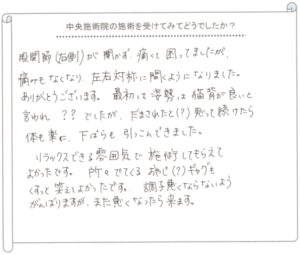 中央施術院の施術を受けてみてどうでしたか?
股関節(右側)が開かず、痛くて困ってましたが、
痛みもなくなり、左右対称に開くようになりました。
ありがとうございます。最初は姿勢は猫背が良いと
言われ ??でしたが、だまされたと(?)思って続けたら
体も楽に、下っぱらも引っこんできました。
リラックスできる雰囲気で施術してもらえて
よかったです。所々でてくるおやじ(?)ギャグも
くすっと笑えてよかったです。調子悪くならないよう
がんばりますが、また悪くなったら来ます。